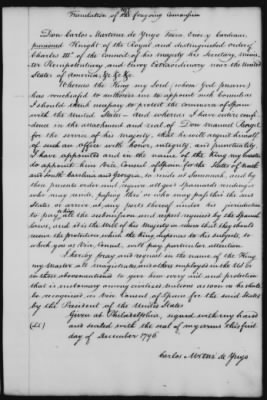 Translation of the foregoing commission
Don Carlos Martinez de Yrujo Tacon, &c.
pensioned Knight of the Royal and distinguished order of
Charles IIId of the Council of his Majesty his Secretary, minis-
ter Plenipotentiary and Envoy Extraordinary near the United
States of America, &c &c &c.
Whereas the King my Lord (whom God preserve)
has vouchsafed to authorize me to appoint such Consuls as
I should think necessary to protect the commerce of Spain
with the United States – and whereas I have entire confi-
dence in the and zeal of Don Manuel
for the service of his Majesty, that he will acquit himself
of such an office with honor, integrity, and punctuality,
I have appointed and in the name of the King my Lord
do appoint him Vice Consul of Spain for the State of North
and South Carolina and Georgia, to reside at Savannah, and by
these presents order and require all good Spaniards residing
who may reside, passing thro' or who may pass thro' the said
States or arrive at any ports thereof under his jurisdiction
to pay all the submission and respect required by the Spanish
laws, and it is the Will of his Majesty in return that they should
receive the protection which the King dispenses to his subjects, to
which you as Vice Consul, will pay particular attention.
I hereby pray and request in the name of the King
my Master all Magistrates and other employed in the U.S.
in their denominations to give him every aid and protection
that is customary among civilized nations as soon as he shall
be recognised as Vice Consul of Spain for the said States
by the President of the United States.
Given at Philadelphia, signed with my hand
(LS) and sealed with the seal of my arms this first
day of December 1796
Carlos Mtnez de Yrujo